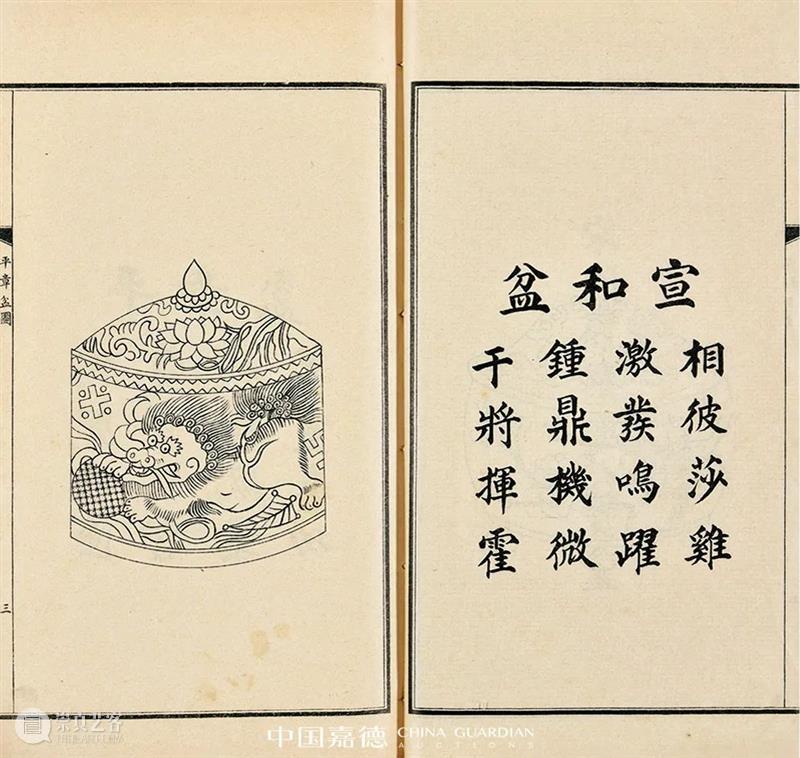 宣和盆
相彼莎雞
激發鳴躍
鍾鼎機微
干將揮霍
平章盆圖
三
崇真艺客
THEARTLINK
中国嘉德 CHINA GUARDIAN
AUCTIONS